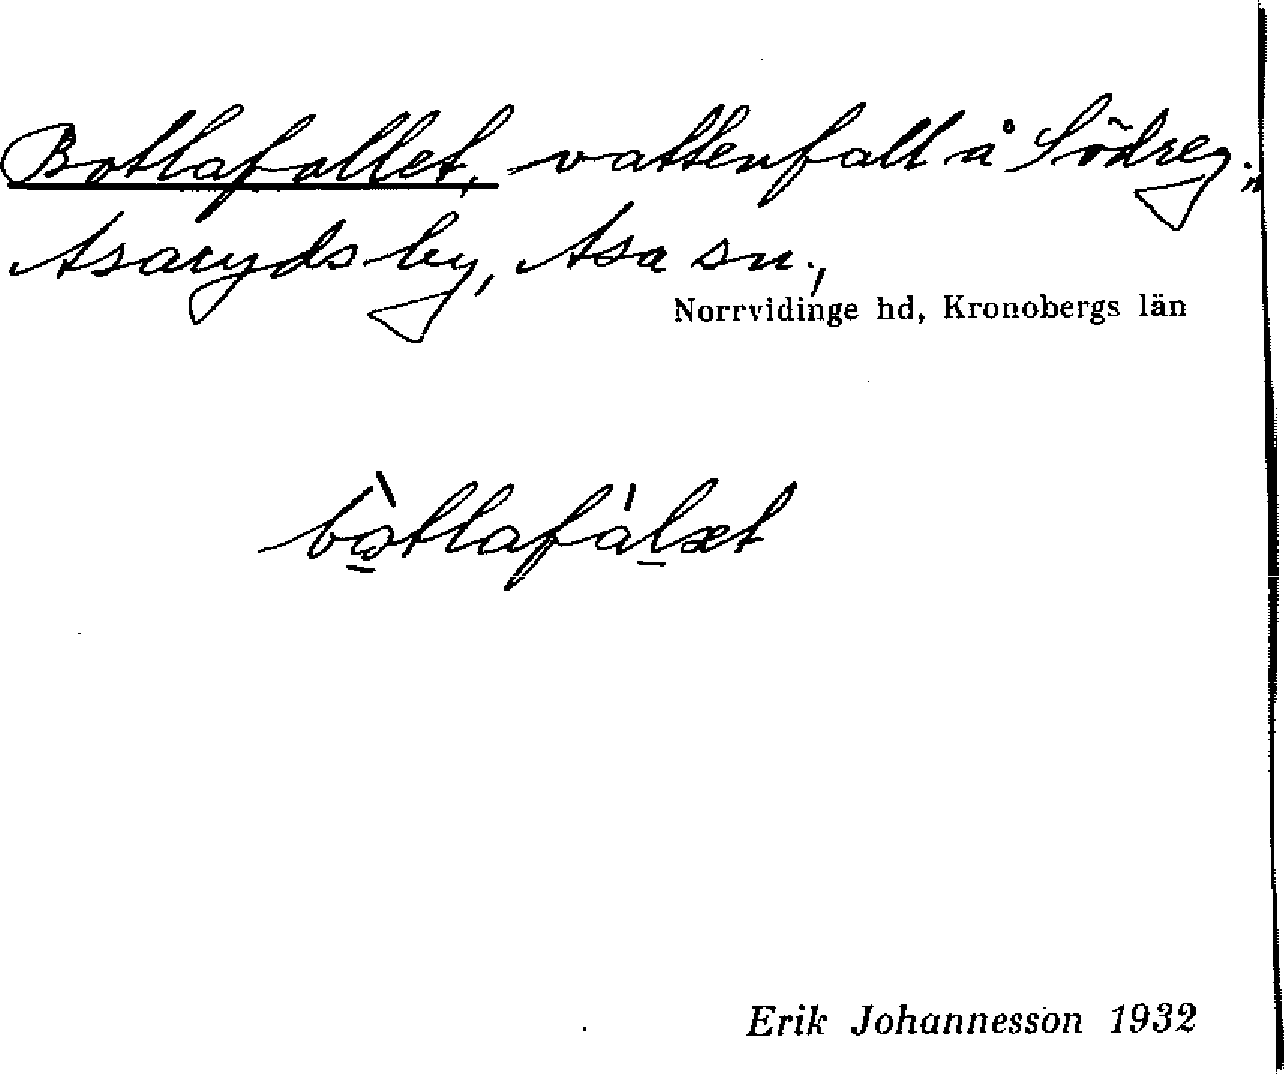 Botlafallet, vattenfall å Södreg.,
Asaryds by, Asa sn.,
Norrvidinge hd, Kronobergs län
bòtlafálæt
Erik Johannesson 1932